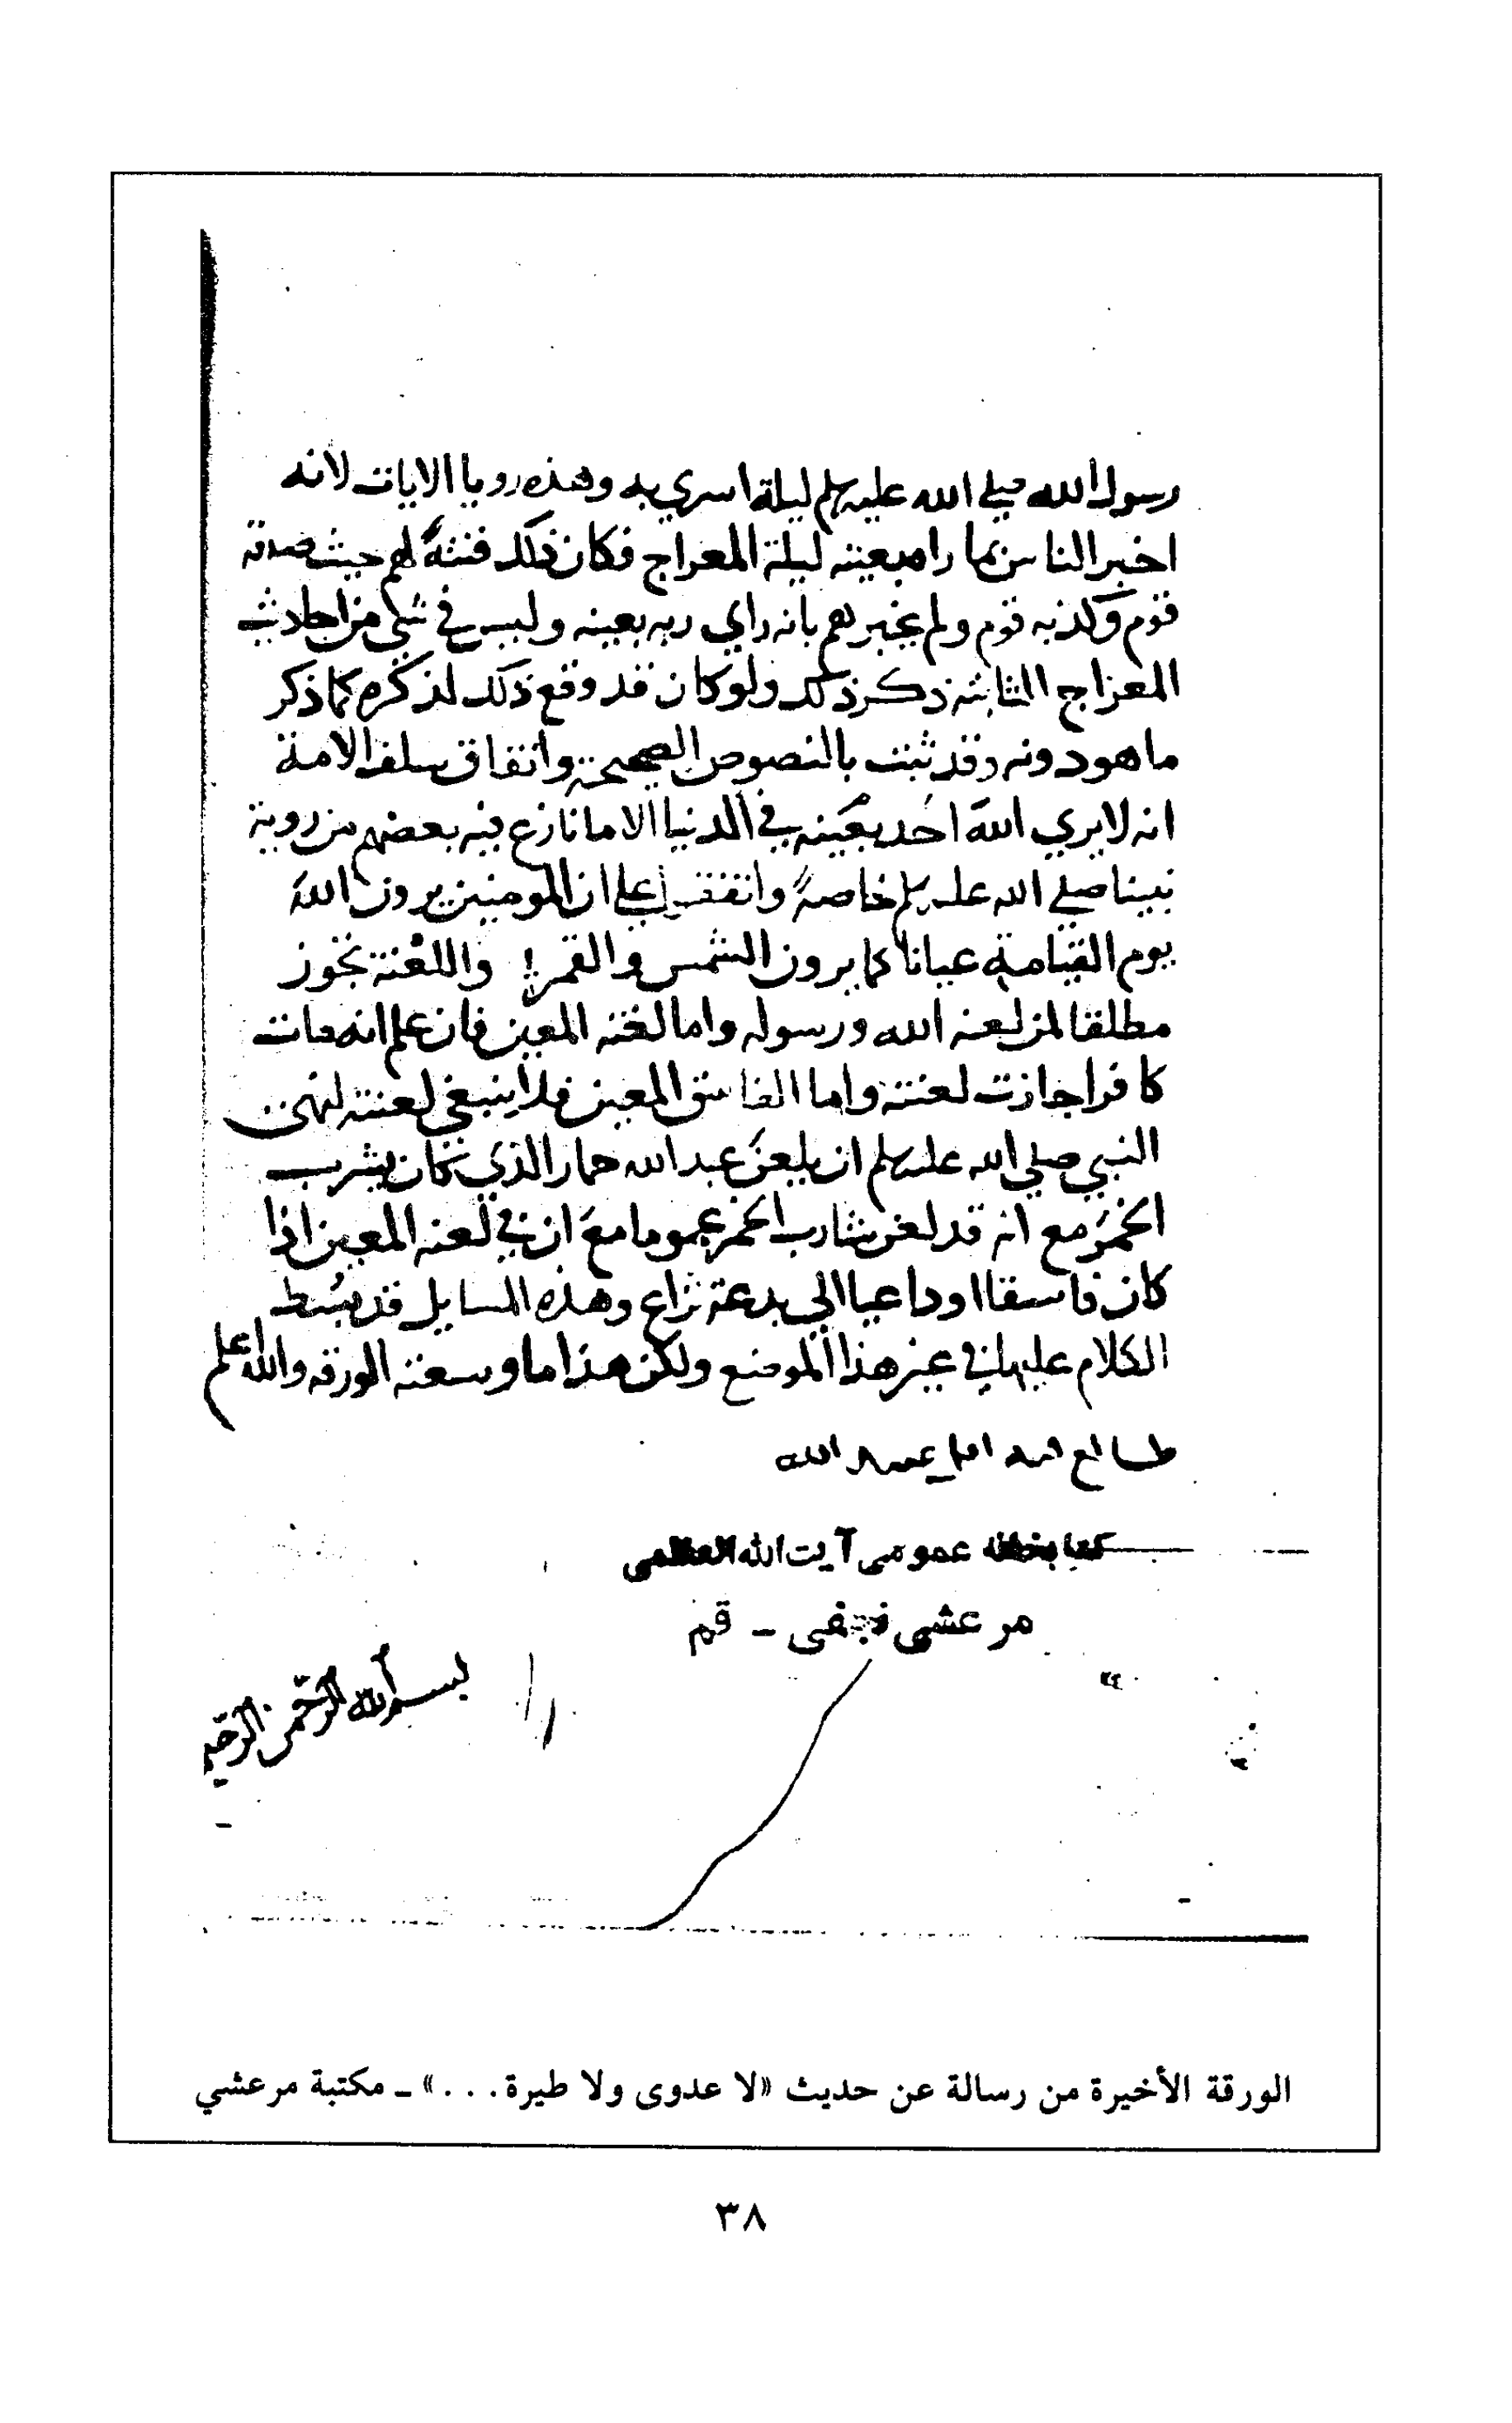 رسول الله صلي الله عليه وسلم ليلة اسري به وهذه رويا الايات لانه
اخبر الناس بما راه بعينه ليلة المعراج فكان ذلك فتنةً لهم حيث صدقه
قوم وكذبه قوم ولم يخبرهم بانه راي ربه بعينه وليس في شي من احاديث
المعراج الثابتة ذكر ذلك ولو كان قد وقع ذلك لذكره كما ذكر
ما هو دونه وقد ثبت بالنصوص الصحيحة واتفاق سلف الامة
انه لا يري الله احد بعينه في الدنيا الا ما نازع فيه بعضهم من روية
نبينا صلي الله عليه وسلم خاصةً واتفقوا علي ان المومنين يرون الله
يوم القيامة عيانا كما يرون الشمس والقمر واللعنة تجوز
مطلقا لمن لعنه الله ورسوله واما لعنة المعين فان علم انه مات
كافرا جازت لعنته واما الفاسق المعين فلا ينبغي لعنته لنهي
النبي صلي الله عليه وسلم ان يلعن عبد الله حمار الذي كان يشرب
الخمر مع انه قد لعن شارب الخمر عموما مع ان في لعنه المعين اذا
كان فاسقا او داعيا الي بدعة نزاع وهذه المسايل قد بسط
الكلام عليها في غير هذا الموضع ولكن هذا ما وسعته الورقه والله اعلم
طالع عبد الله
كتابخانه عمومى آيت الله العظمى
مرعشى نجفى - قم
بسم الله الرحمن الرحيم
الورقة الأخيرة من رسالة عن حديث «لا عدوى ولا طيرة...» - مكتبة مرعشي
٣٨